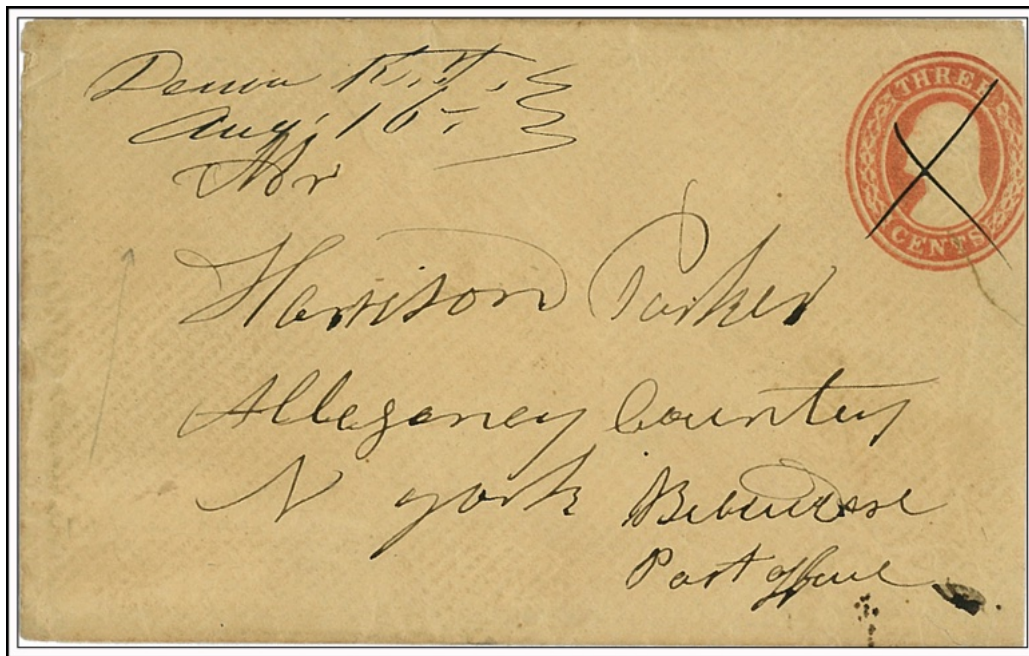 K.T.
Aug. 16
Mr
Harrison Parker
Allegeney County
N york
Post office
THREE
CENTS